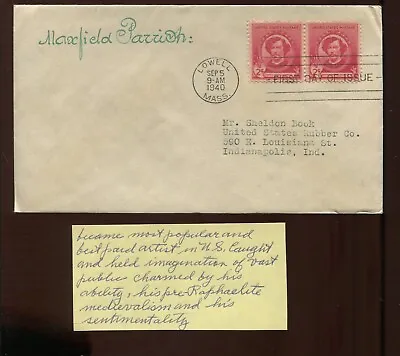 Maxfield Parrish:
LOWELL
SEP 5
9-AM
1940
MASS.
FIRST DAY OF ISSUE
2¢ 2¢
Mr. Sheldon Book
United States Rubber Co.
890 E. Louisiana St.
Indianapolis, Ind.
became most popular and
best paid artist in U.S. Caught
and held imagination of vast
public charmed by his
ability, his pre-Raphaelite
medievalism and his
sentimentality